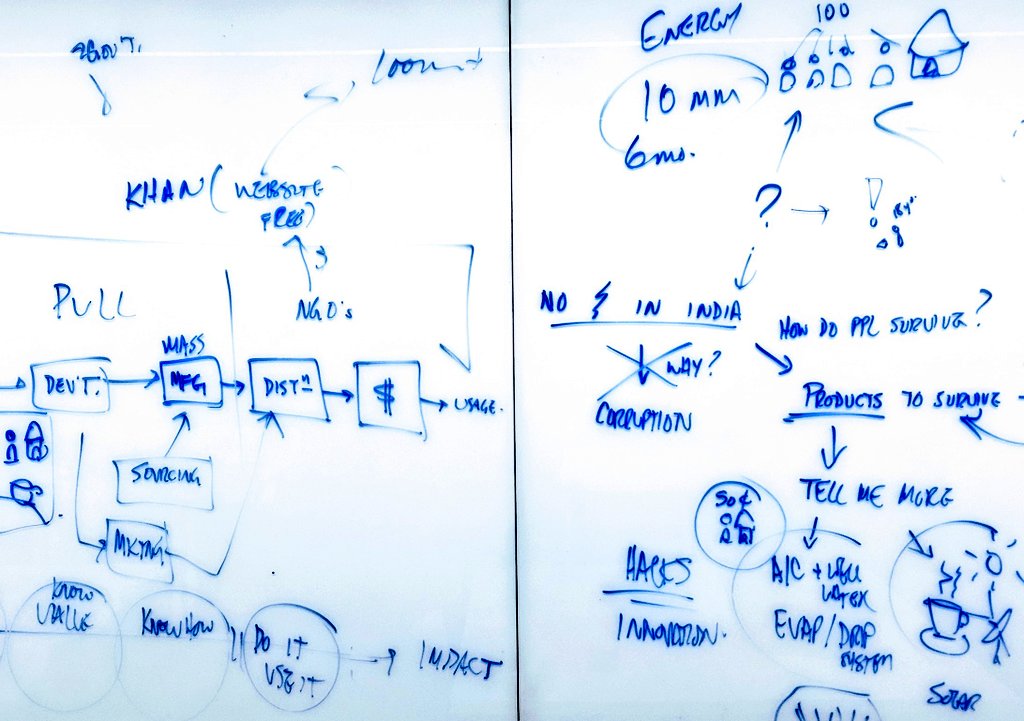 GOV'T.
KHAN (WEBSITE
FREE)
3
NGO's
PULL
DEV'T.
MASS
MFG
DISTN
$
USAGE.
SOURCING
MKTNG
KNOW
VALUE
KNOW HOW
DO IT
USE IT
IMPACT
ENERGY
100
10 MM
6 mo.
?
!
NO IN INDIA
HOW DO PPL SURVIVE?
WHY?
CORRUPTION
PRODUCTS TO SURVIVE
TELL ME MORE
50¢
HACKS
INNOVATION.
A/C +
WATER
EVAP/DRIP
SYSTEM
SOLAR